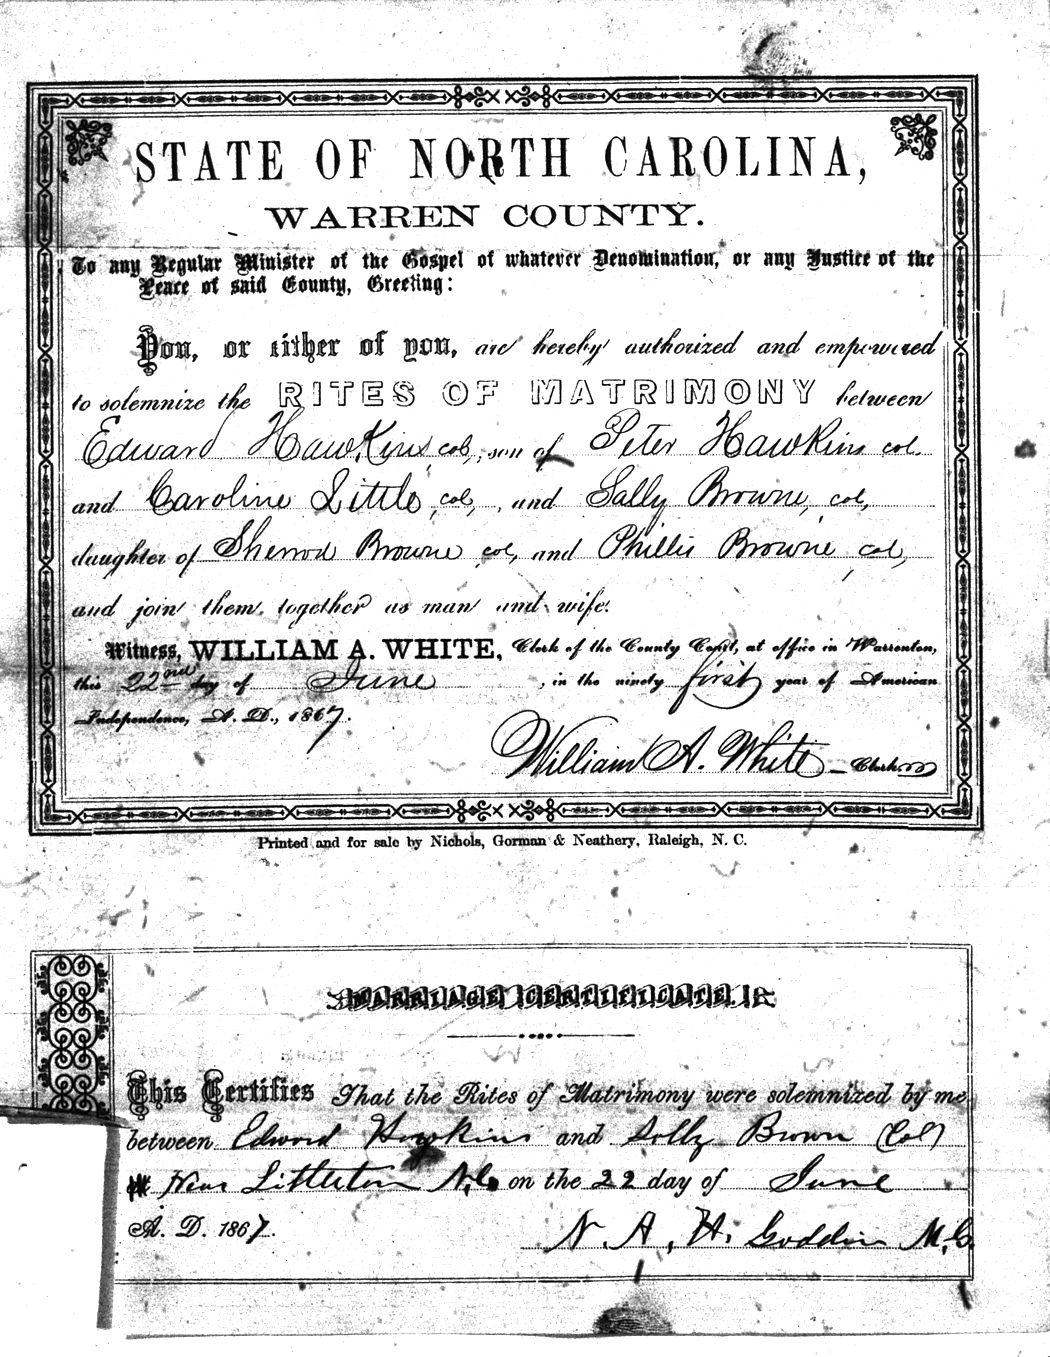 STATE OF NORTH CAROLINA,
WARREN COUNTY.
To any Regular Minister of the Gospel of whatever Denomination, or any Justice of the
Peace of said County, Greeting:
You, or either of you, are hereby authorized and empowered
to solemnize the RITES OF MATRIMONY between
Edward Hawkins, col, son of Peter Hawkins col.
and Caroline Little, col, and Sally Browne, col,
daughter of Sherrod Browne, col, and Phillis Browne, col,
and join them together as man and wife.
Witness, WILLIAM A. WHITE, Clerk of the County Court, at office in Warrenton,
this 22nd day of June, in the ninety first year of American
Independence, A. D., 1867.
William A. White Clerk
Printed and for sale by Nichols, Gorman & Neathery, Raleigh, N. C.
MARRIAGE CERTIFICATE.
This Certifies That the Rites of Matrimony were solemnized by me
between Edword Hawkins and Solly Brown (Col)
Near Littleton N.C. on the 22 day of June
A. D. 1867.
N. A. H. Goddin M.G.